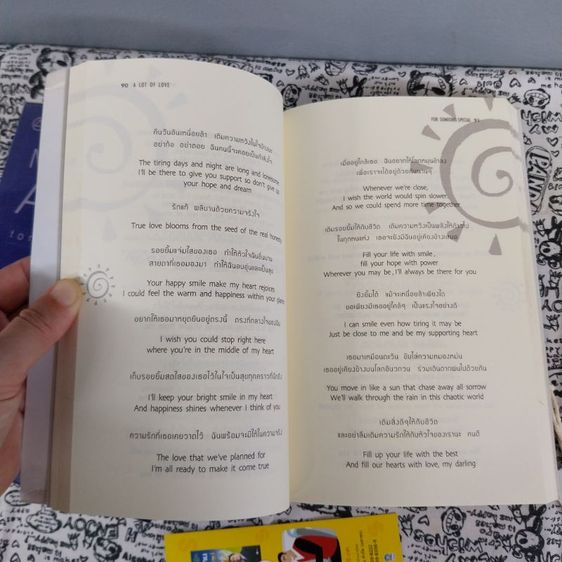 90 A LOT OF LOVE
คืนวันอันเหนื่อยล้า เติมความหวังในใจ
อย่าท้อ อย่าถอย ฉันคนนี้จะคอยเป็นกำลังใจ
The tiring days and night are long and lonesome
I'll be there to give you support so don't give up
your hope and dream
รักแท้ ผลิบานด้วยความจริงใจ
True love blooms from the seed of the real honesty
รอยยิ้มแจ่มใสของเธอ ทำให้หัวใจฉันชื่นบาน
สายตาที่เธอมองมา ทำให้ฉันอบอุ่นและเป็นสุข
Your happy smile make my heart rejoices
I could feel the warm and happiness within your
อยากให้เธอมาหยุดยืนอยู่ตรงนี้ ตรงที่กลางใจของฉัน
I wish you could stop right here
where you're in the middle of my heart
เก็บรอยยิ้มสดใสของเธอไว้ในใจ เป็นสุขทุกคราวที่นึกถึง
I'll keep your bright smile in my heart
And happiness shines whenever I think of you
ความรักที่เธอเคยวาดไว้ ฉันพร้อมจะมีให้ในความจริง
The love that we've planned for
I'm all ready to make it come true
FOR SOMEONE SPECIAL 91
เมื่ออยู่ใกล้เธอ ฉันอยากให้โลกหมุนช้าลง
เพื่อเราจะได้อยู่ด้วยกันนานๆ
Whenever we're close,
I wish the world would spin slower
And so we could spend more time together
เติมรอยยิ้มให้กับชีวิต เติมความหวังเป็นพลังให้กับวันนี้
ในทุกหนแห่ง เธอจะยังมีฉันอยู่เคียงข้างเสมอ
Fill your life with smile,
fill your hope with power
Wherever you may be, I'll always be there for you
ยังยิ้มได้ แม้จะเหนื่อยล้าเพียงใด
ขอเพียงมีเธออยู่ใกล้ๆ เป็นแรงใจอย่างดี
I can smile even how tiring it may be
Just be close to me and be my supporting heart
เธอมาเหมือนตะวัน ขับไล่ความหมองหม่น
เธออยู่เคียงข้างบนโลกอันวกวน ร่วมเดินตากฝนไปด้วยกัน
You move in like a sun that chase away all sorrow
We'll walk through the rain in this chaotic world
เติมสิ่งดีๆให้กับชีวิต
และอย่าลืมเติมความรักให้กับหัวใจของเรานะ คนดี
Fill up your life with the best
And fill our hearts with love, my darling